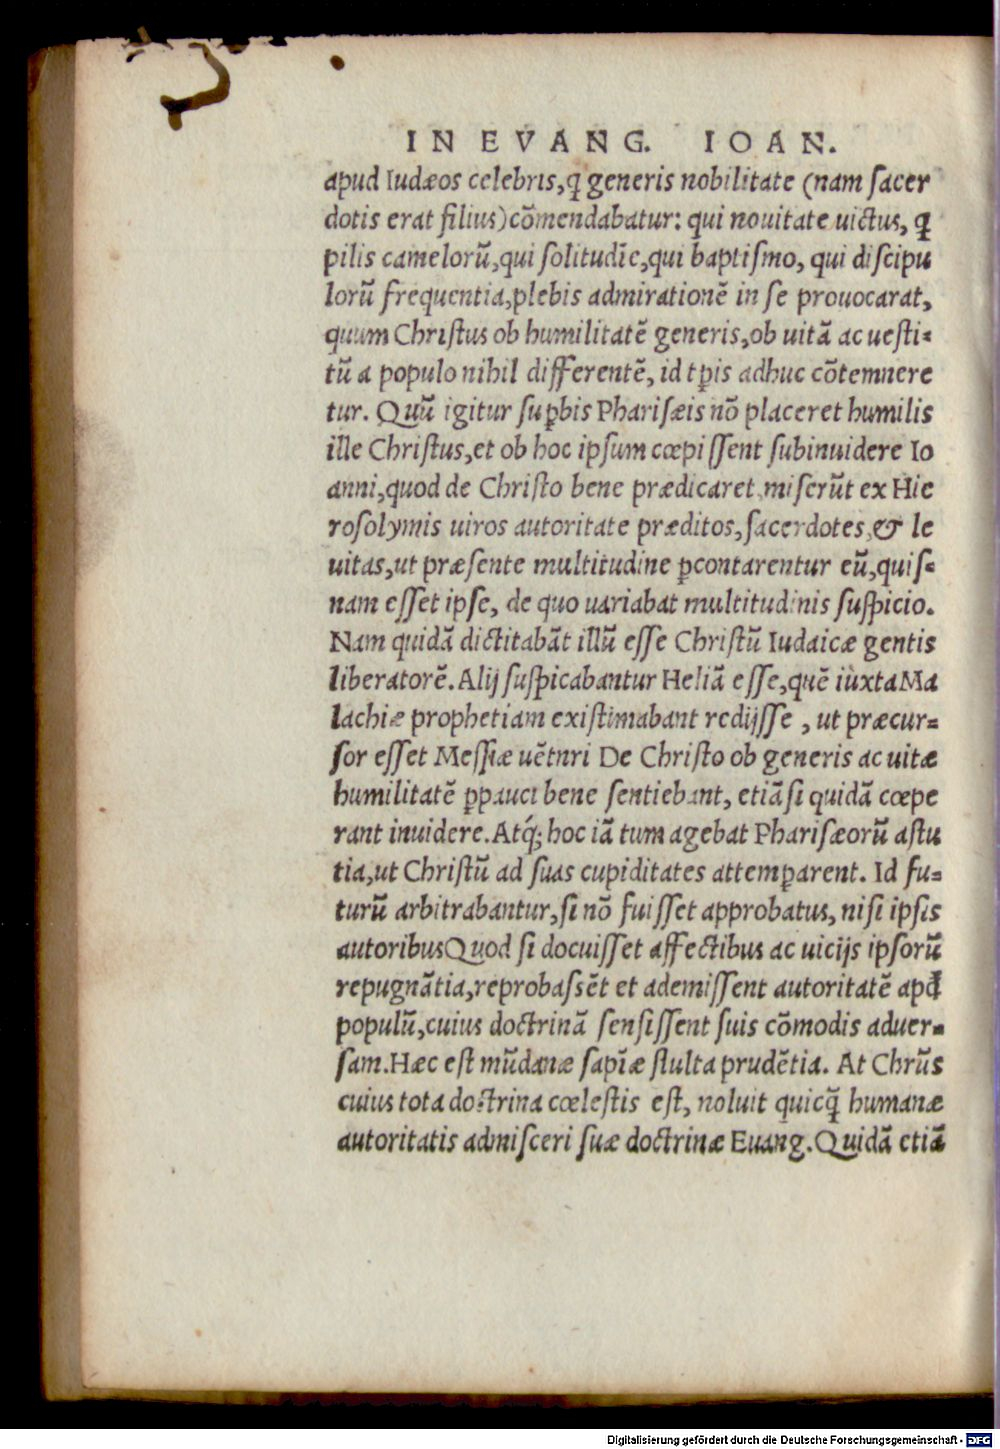 IN EVANG. IOAN.
apud Iudæos celebris, ꝗ generis nobilitate (nam ſacer
dotis erat filius) cõmendabatur: qui nouitate uictus, ꝗ
pilis camelorũ, qui ſolitudĩe, qui baptiſmo, qui diſcipu
lorũ frequentia, plebis admirationẽ in ſe prouocarat,
quum Chriſtus ob humilitatẽ generis, ob uitã ac ueſti-
tũ a populo nihil differentẽ, id tꝑis adhuc cõtemnere
tur. Quũ igitur ſuꝑbis Phariſæis nõ placeret humilis
ille Chriſtus, et ob hoc ipſum cœpiſſent ſubinuidere Io
anni, quod de Chriſto bene prædicaret, miſerũt ex Hie
roſolymis uiros autoritate præditos, ſacerdotes, & le
uitas, ut præſente multitudine ꝑcontarentur eũ, quiſ-
nam eſſet ipſe, de quo uariabat multitudinis ſuſpicio.
Nam quidã dictitabãt illũ eſſe Chriſtũ Iudaicæ gentis
liberatorẽ. Alij ſuſpicabantur Heliã eſſe, quẽ iùxta Ma
lachiæ prophetiam exiſtimabant redijſſe, ut præcur-
ſor eſſet Meſſiæ uẽtnri De Chriſto ob generis ac uitæ
humilitatẽ ꝑpauci bene ſentiebant, etiã ſi quidã cœpe
rant inuidere. Atq́; hoc iã tum agebat Phariſæorũ aſtu
tia, ut Chriſtũ ad ſuas cupiditates attemꝑarent. Id fu-
turũ arbitrabantur, ſi nõ fuiſſet approbatus, niſi ipſis
autoribus Quod ſi docuiſſet affectibus ac uicijs ipſorũ
repugnãtia, reprobaſsẽt et ademiſſent autoritatẽ apđ
populũ, cuius doctrinã ſenſiſſent ſuis cõmodis aduer-
ſam. Hæc eſt mũdanæ ſapĩæ ſtulta prudẽtia. At Chrũs
cuius tota doctrina cœleſtis eſt, noluit quicꝗ̃ humanæ
autoritatis admiſceri ſuæ doctrinæ Euang. Quidã etiã
Digitalisierung gefördert durch die Deutsche Forschungsgemeinschaft - DFG